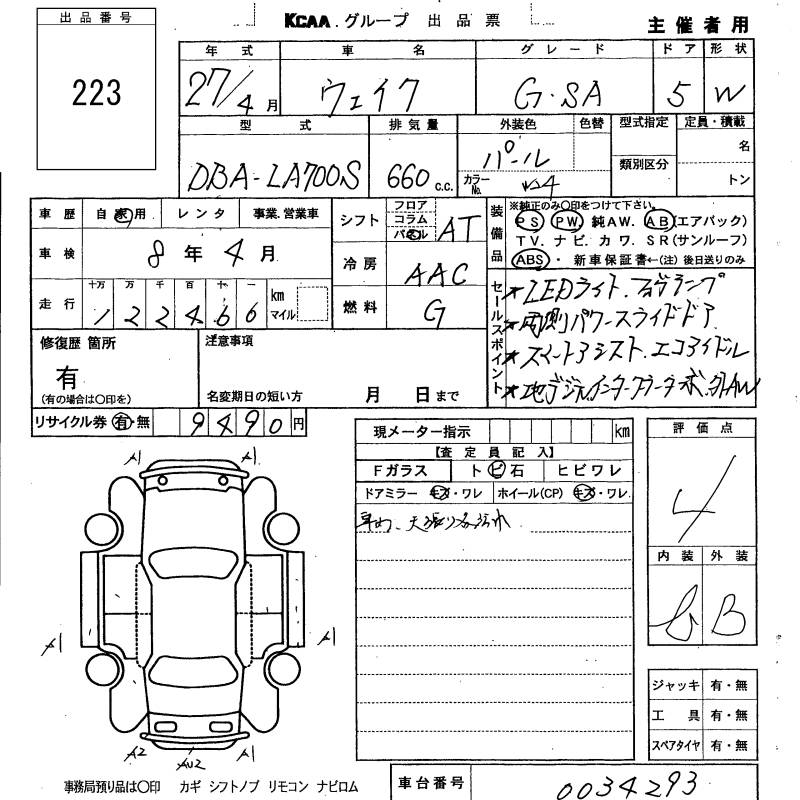 出品番号
KCAA.グループ 出品票
主催者用
223
年式 車名 グレード ドア 形状
27/4月 ウェイク G・SA 5 W
型式 排気量 外装色 色替 型式指定 定員・積載
名
類別区分
トン
DBA-LA700S 660 c.c. パール カラーNo. W24
車歴 自家用 レンタ 事業.営業車
車検 8年4月
走行 十万 万 千 百 十 一 km マイル
122466
シフト フロア コラム パネル AT
冷房 AAC
燃料 G
装備品
※純正のみ○印をつけて下さい。
PS PW 純AW. AB(エアバック)
TV.ナビ.カワ.SR(サンルーフ)
ABS・新車保証書←(注)後日送りのみ
セールスポイント
★LEDライト.フォグランプ
★両側パワースライドドア
★スマートアシスト.エコアイドル
★地デジ/インタークーラーターボ.外AW
修復歴 箇所
有
(有の場合は○印を)
注意事項
名変期日の短い方 月 日まで
リサイクル券 有・無 9490円
現メーター指示 km
【査定員記入】
Fガラス トビ石 ヒビワレ
ドアミラー キズ・ワレ ホイール(CP) キズ・ワレ
天張り
汚れ
評価点
4
内装 外装
B
A1 A1
A1 A1
A2 AU2
ジャッキ 有・無
工具 有・無
スペアタイヤ 有・無
事務局預り品は○印 カギ シフトノブ リモコン ナビロム
車台番号 0034293